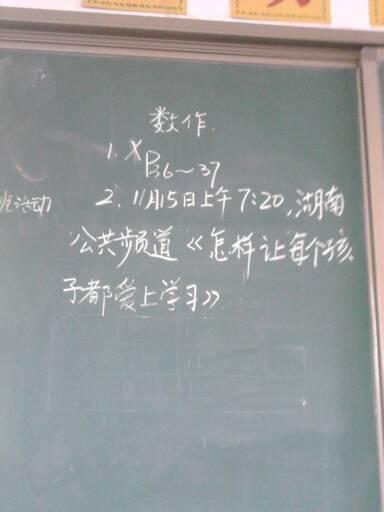 数作.
1. X P36~37
2. 11月15日上午7:20, 湖南
公共频道《怎样让每个孩
子都爱上学习》
活动